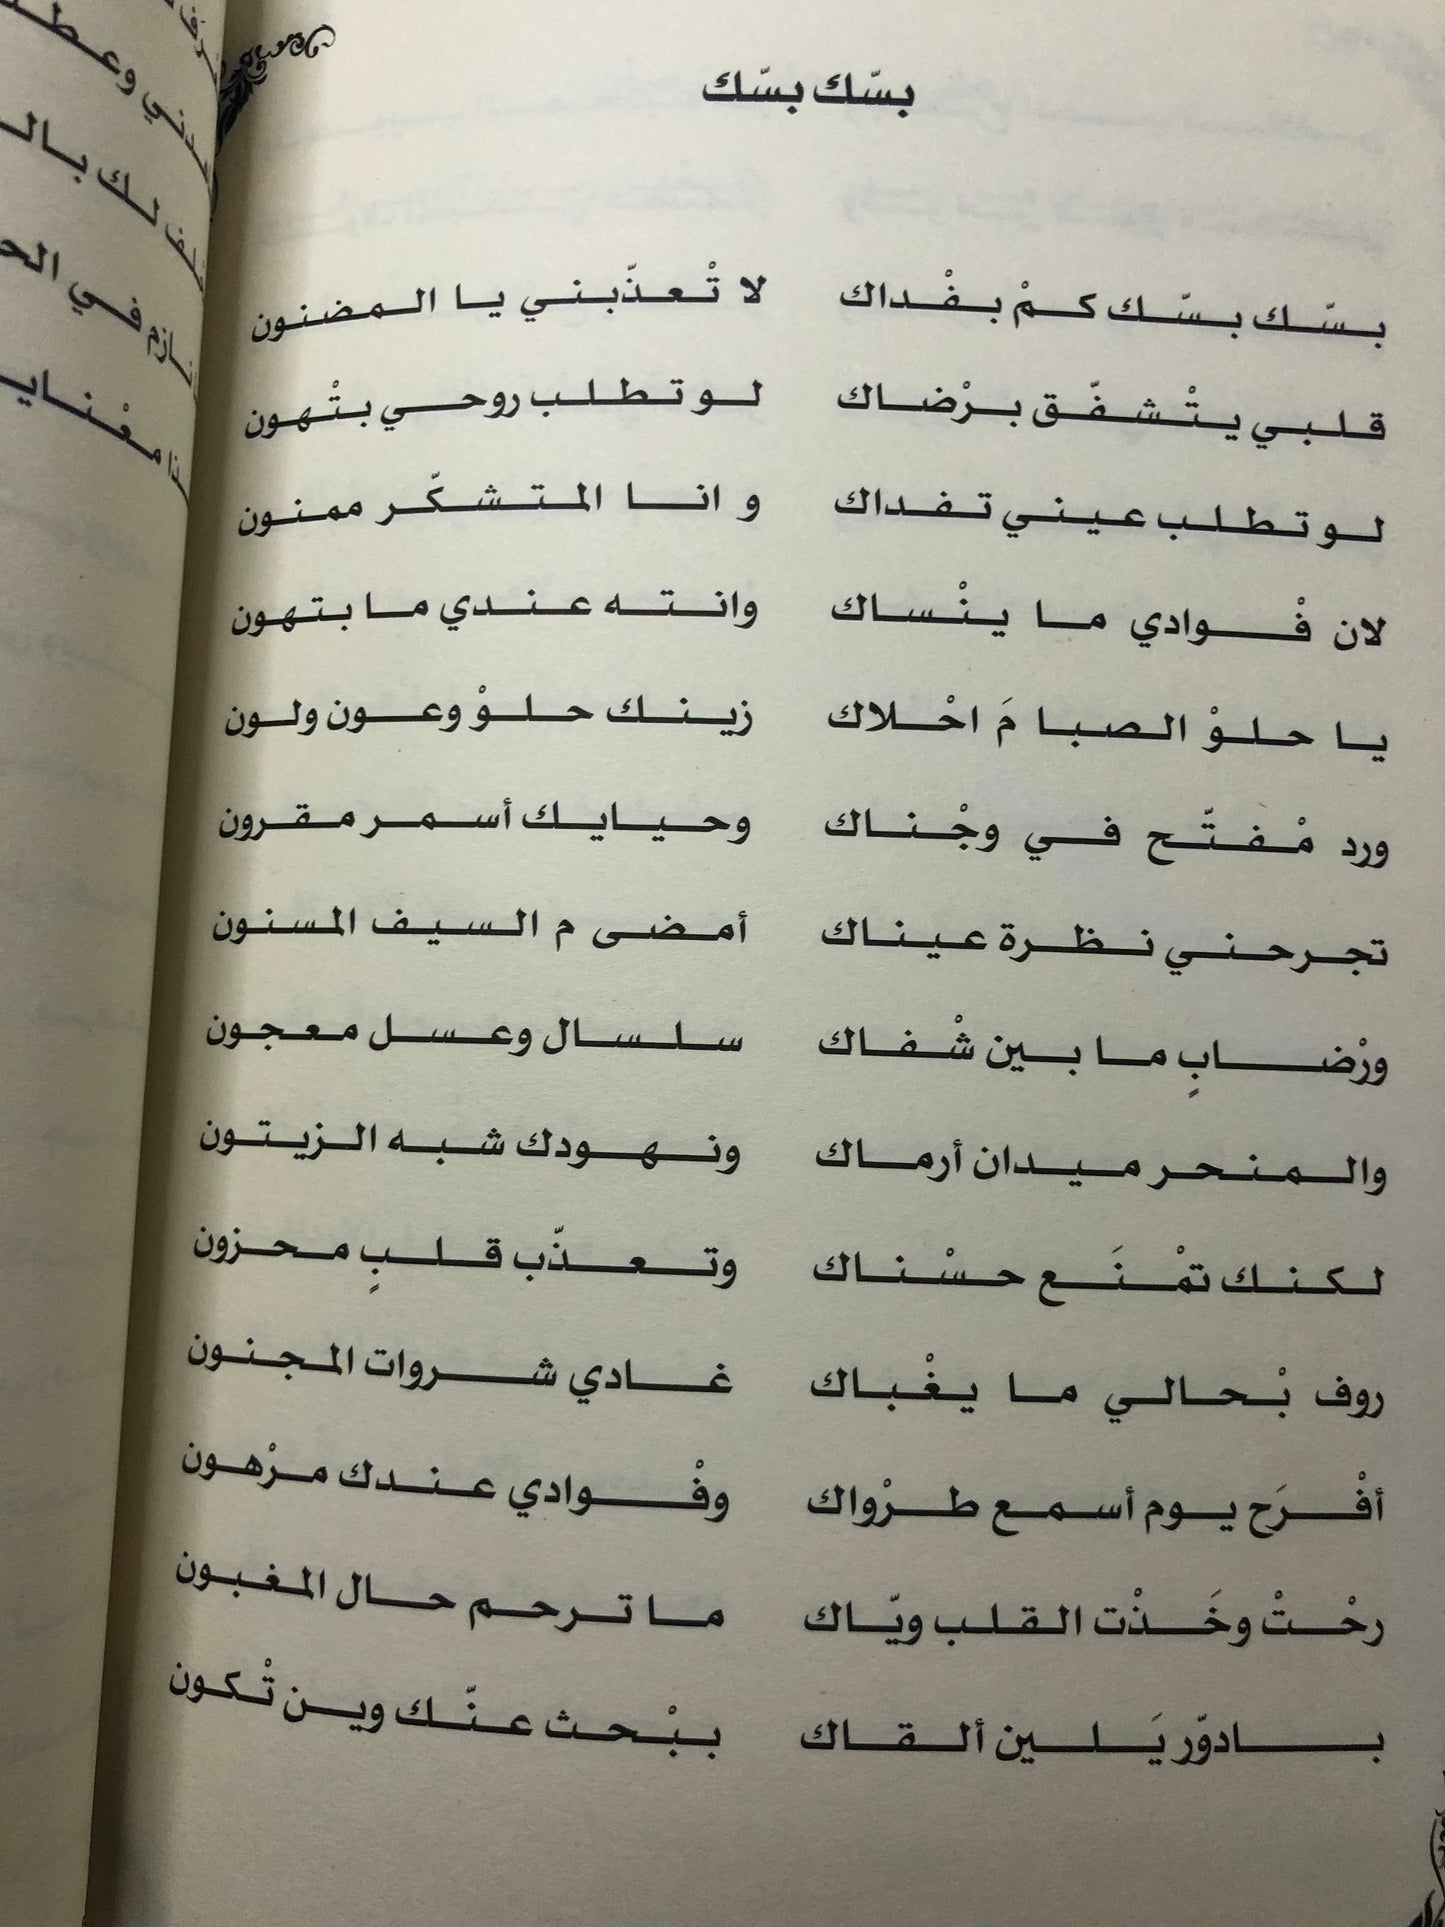 بسّك بسّك
بسّك بسّك كمْ بفْداك لا تْعذّبني يا المضنون
قلبي يتْشفّق برْضاك لو تطلب روحي بتْهون
لو تطلب عيني تفداك و انا المتشكّر ممنون
لان فْوادي ما ينْساك وانته عندي ما بتهون
يا حلوْ الصبا مَ احْلاك زينك حلوْ وعون ولون
ورد مْفتّح في وجْناك وحيايك أسمر مقرون
تجرحني نظرة عيناك أمضى م السيف المسنون
ورْضابٍ ما بين شْفاك سلسال وعسل معجون
والمنحر ميدان أرماك ونهودك شبه الزيتون
لكنك تمْنَع حسْناك وتعذّب قلبٍ محزون
روف بْحالي ما يغْباك غادي شروات المجنون
أفْرَح يوم أسمع طرْواك وفْوادي عندك مرْهون
رحْتْ وخَذْت القلب ويّاك ما ترحم حال المغبون
بادوّر يَلين ألقاك ببْحث عنّك وين تْكون
وعطـ
لك بالـ
في الحـ
معْنايـ